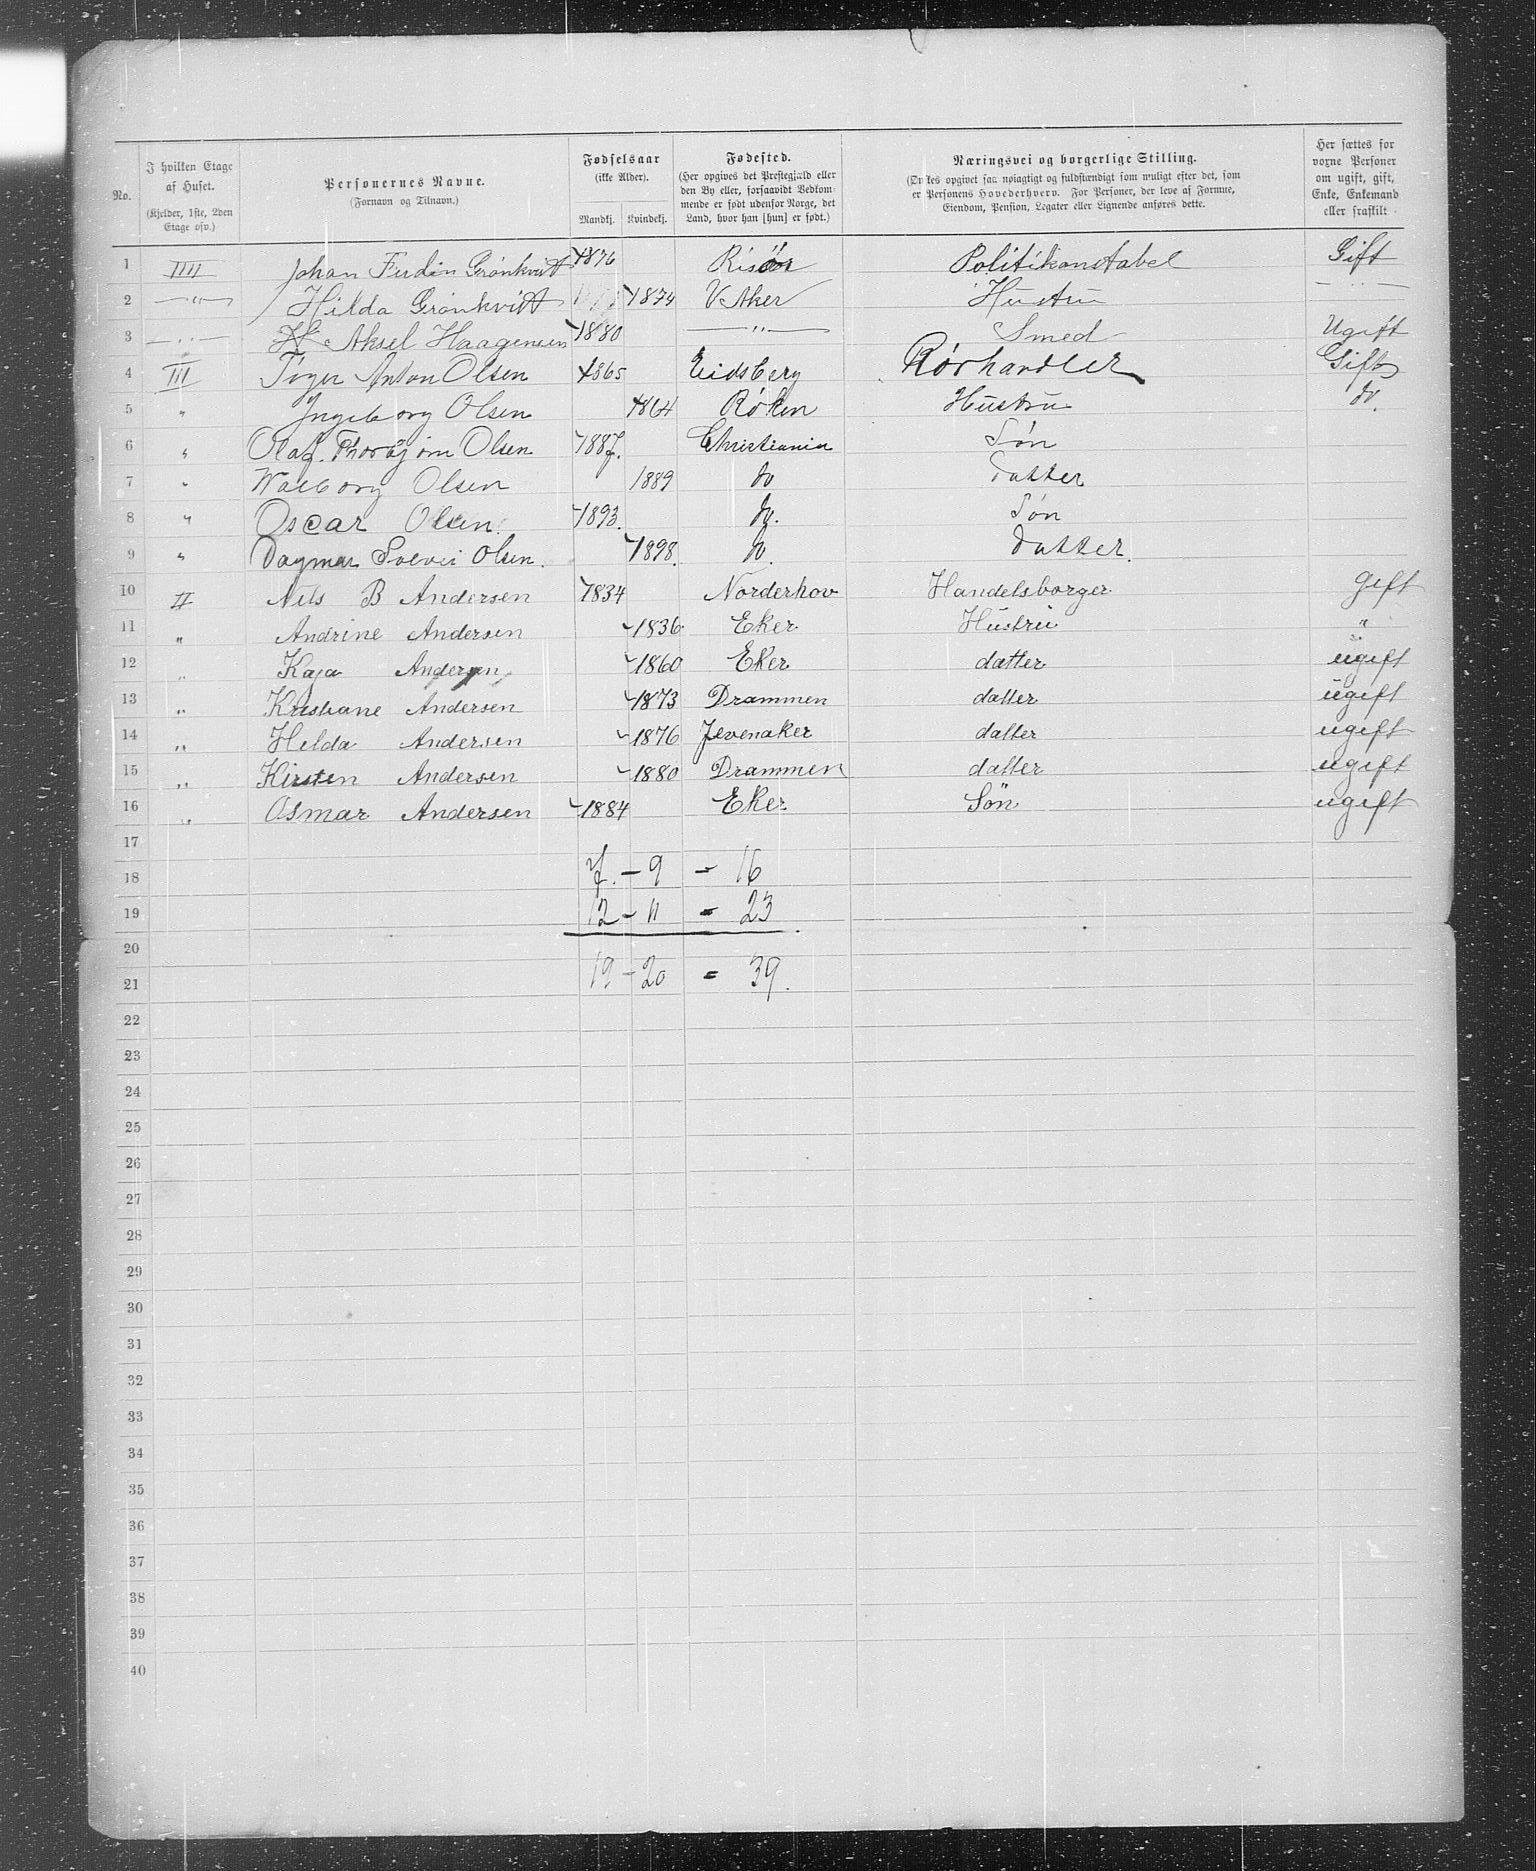 No. | I hvilken Etage af Huset. (Kjelder, 1ste, 2den Etage osv.) | Personernes Navne. (Fornavn og Tilnavn.) | Fødselsaar (ikke Alder). Mandkj. Kvindekj. | Fødested. (Her opgives det Prestegjæld eller den By eller, forsaavidt Vedkommende er født udenfor Norge, det Land, hvor han [hun] er født.) | Næringsvei og borgerlige Stilling. (Ønskes opgivet saa nøiagtigt og fuldstændigt som muligt efter det, som er Personens Hovederhverv. For Personer, der leve af Formue, Eiendom, Pension, Legater eller Lignende anføres dette. | Her sættes for voxne Personer om ugift, gift, Enke, Enkemand eller fraskilt.
1 IIII Johan Ferdin Grönkvitt 1876 Risöer Politikonstabel Gift
2 — " — Hilda Grönkvitt 1874 V Aker Hustru — " —
3 — " — Aksel Haagensen 1880 — " — Smed Ugift
4 III Inger Anton Olsen 1865 Eidsberg Rørhandler Gift
5 " Ingeborg Olsen 1864 Røken Hustru do.
6 " Olaf Thorbjørn Olsen 1887. Christiania Søn
7 " Walborg Olsen 1889 do Datter
8 " Oscar Olsen. 1893. do. Søn
9 " Dagmar Solvei Olsen. 1898. do. Datter.
10 II Nils B Andersen 1834 Norderhov Handelsborger gift
11 " Andrine Andersen 1836 Eker Hustru "
12 " Kaja Andersen 1860 Eker datter ugift
13 " Kristiane Andersen 1873 Drammen datter ugift
14 " Helda Andersen 1876 Jevenaker datter ugift
15 " Kirsten Andersen 1880 Drammen datter ugift
16 " Osmar Andersen 1884 Eker Sön ugift
17
18 7. — 9 = 16
19 12 — 11 = 23
20
21 19 — 20 = 39.
22
23
24
25
26
27
28
29
30
31
32
33
34
35
36
37
38
39
40